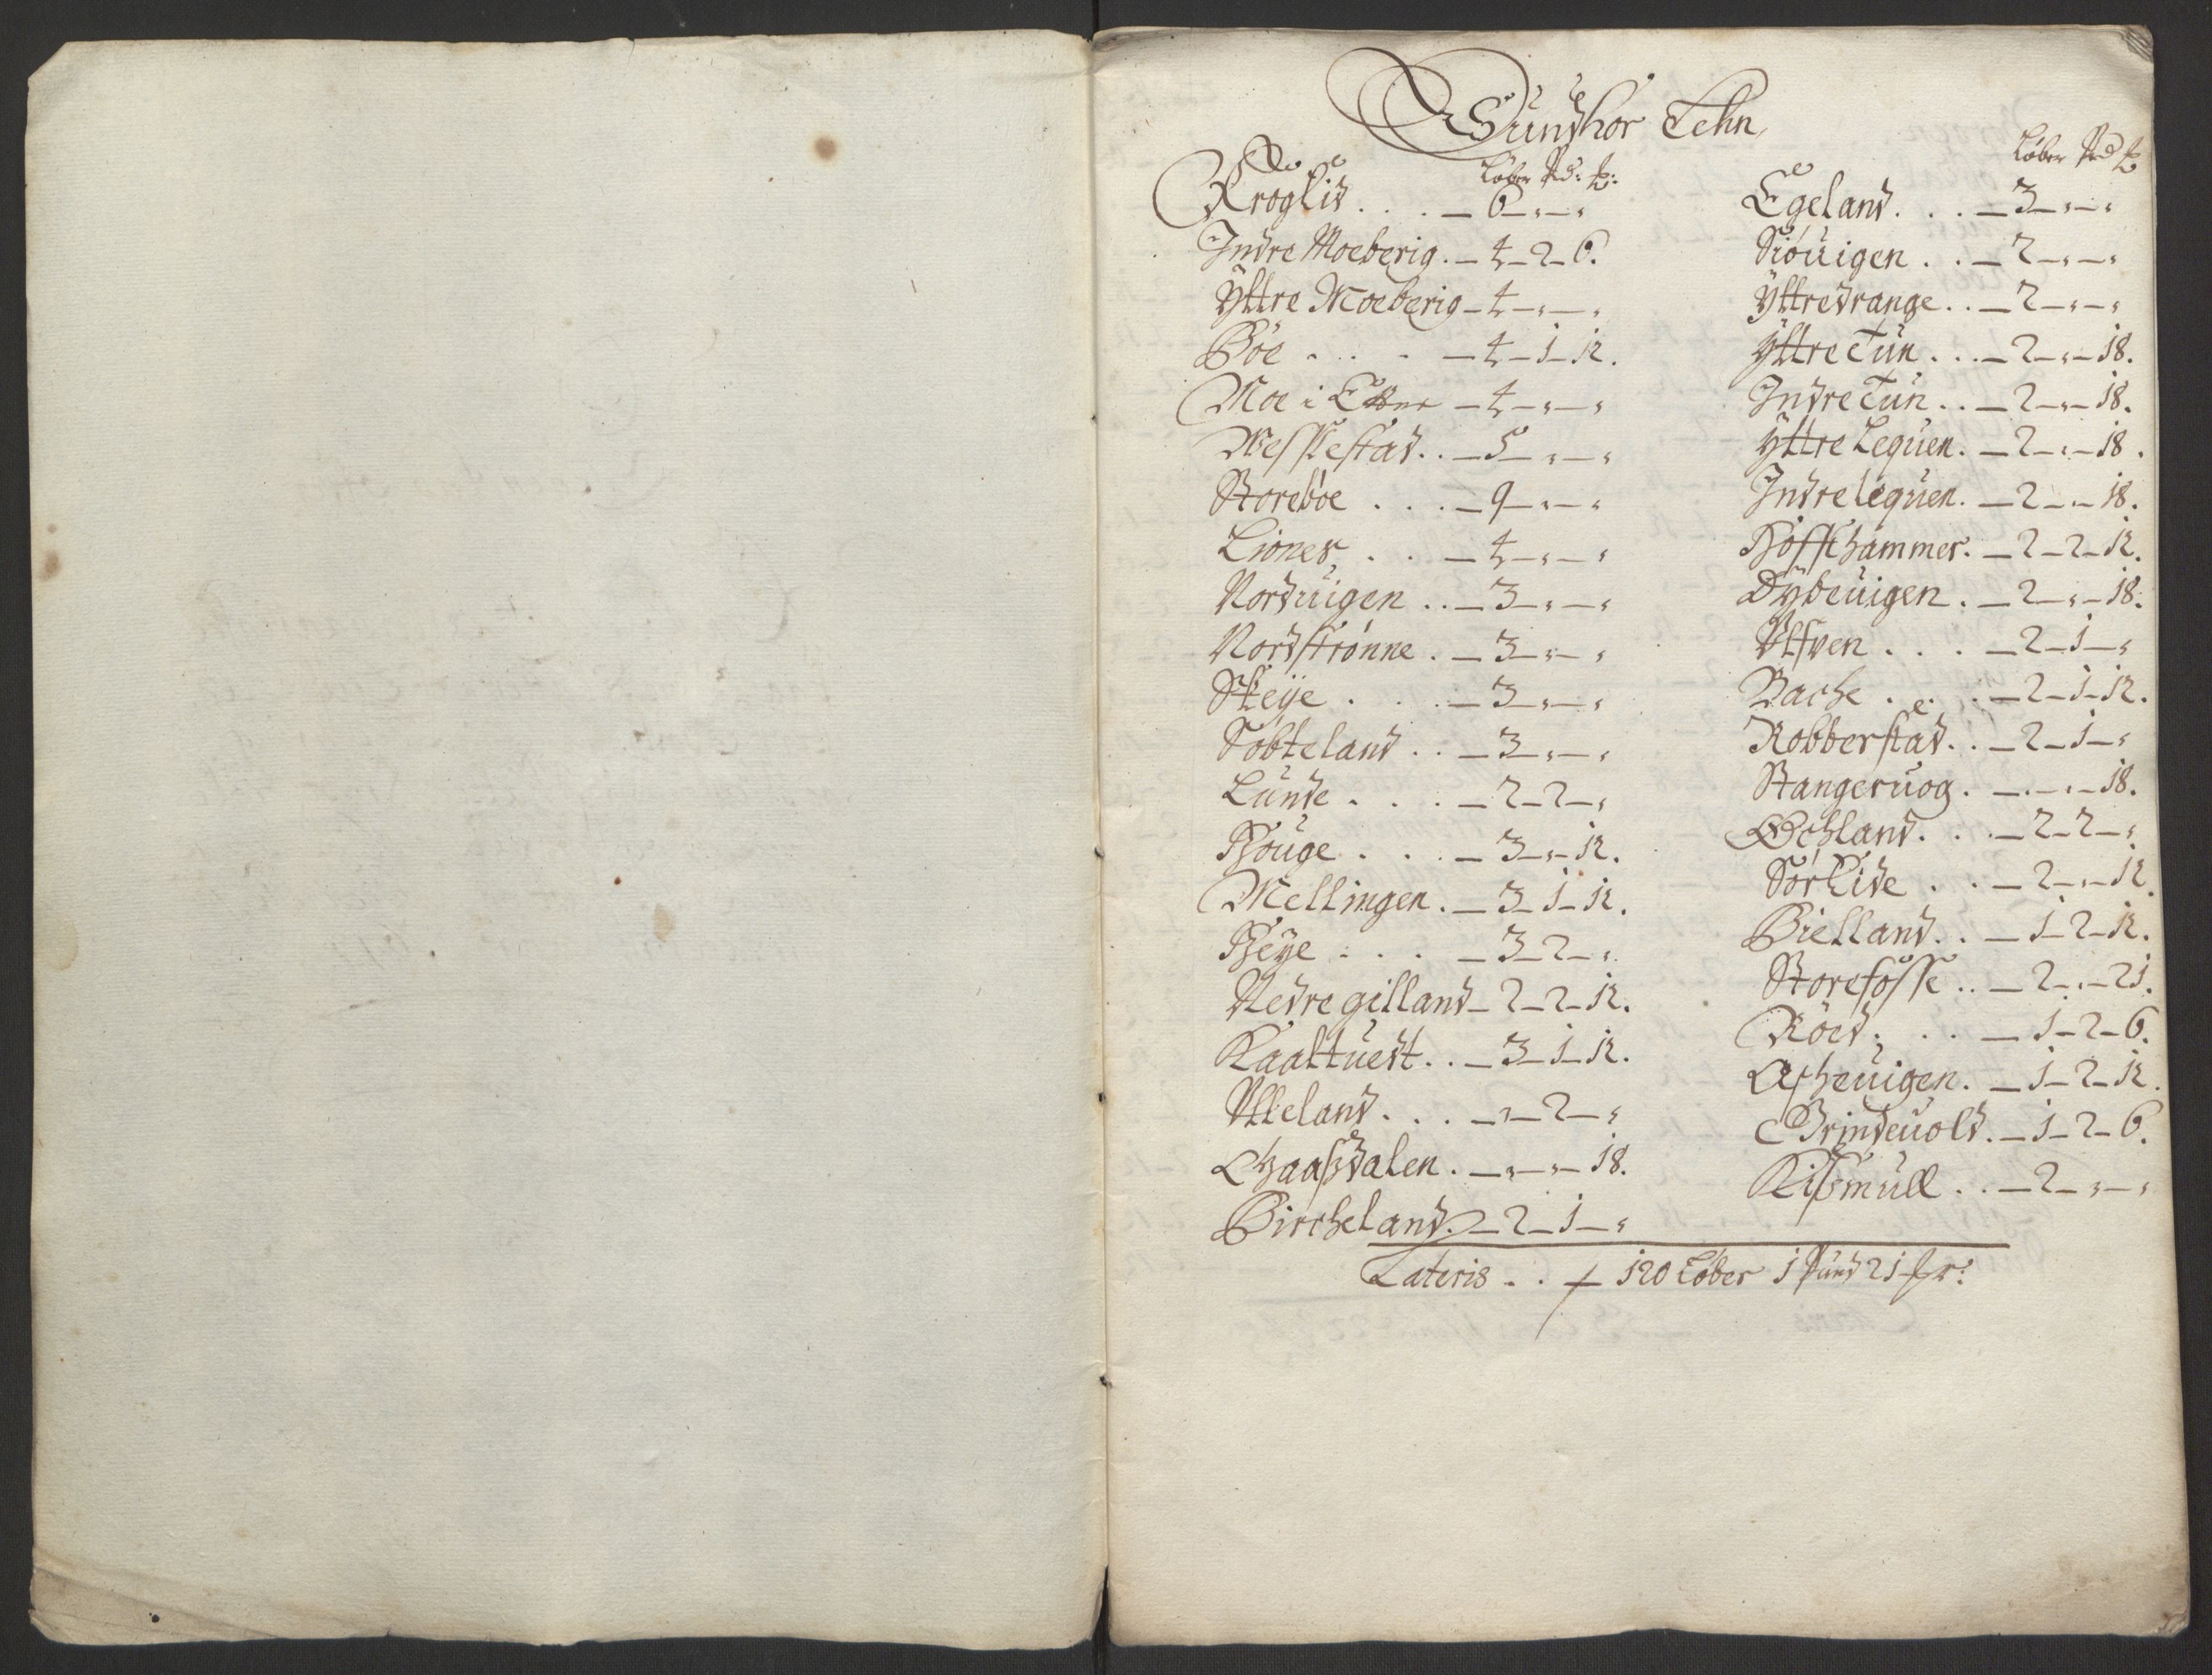 Sundhor Lehn
Løber Pd: ℔:
Kroglid . . . — 6 — " — "
Indre Moeberig . — 4 — 2 — 6.
Yttre Moeberig — 4 — " — "
Böe . . . . — 4 — 1 — 12.
Moe i Etne — 4 — " — "
Weskestad . . — 5 — " — "
Storeböe . . . — 9 — " — "
Liones . . — 4 — " — "
Norduigen . . — 3 — " — "
Nordstrønne . — 3 — " — "
Skeye . . . — 3 — " — "
Söbteland . . — 3 — " — "
Lunde . . . — 2 — 2 — "
Houge . . . — 3 — " — 12.
Mellingen . — 3 — 1 — 12.
Heye . . . — 3 — 2 — "
Nedre gilland — 2 — 2 — 12.
Kaaltuedt . . — 3 — 1 — 12.
Utteland . . . — " — 2 — "
Ohaaszdalen . — " — " — 18.
Bircheland . — 2 — 1 — "
Løber Pd ℔
Egeland . . . — 3 — " — "
Siöuigen . . — 2 — " — "
Yttredrange . . — 2 — " — "
Yttre Tun . . . — 2 — " — 18.
Indre Tun . . — 2 — " — 18.
Yttre Lequen . — 2 — " — 18.
Indre lequen . — 2 — " — 18.
Höffshammer . — 2 — 2 — 12.
Dybeuigen . — 2 — " — 18.
Ulfven . . . — 2 — 1 — "
Bache . . . — 2 — 1 — 12.
Robberstad . . — 2 — 1 — "
Stangeruog . — " — " — 18.
Øchland . . . — 2 — 2 — "
Sörlide . . — 2 — " — 12.
Bielland . . — 1 — 2 — 12.
Storefosse . . — 2 — " — 21.
Röed . . . — 1 — 2 — 6.
Ascheuigen . — 1 — 2 — 12.
Grindeuold . — 1 — 2 — 6.
Kiszmull . . — 2 — " — "
Lateris . . — 120 Løber 1 Pund 21 ℔r: